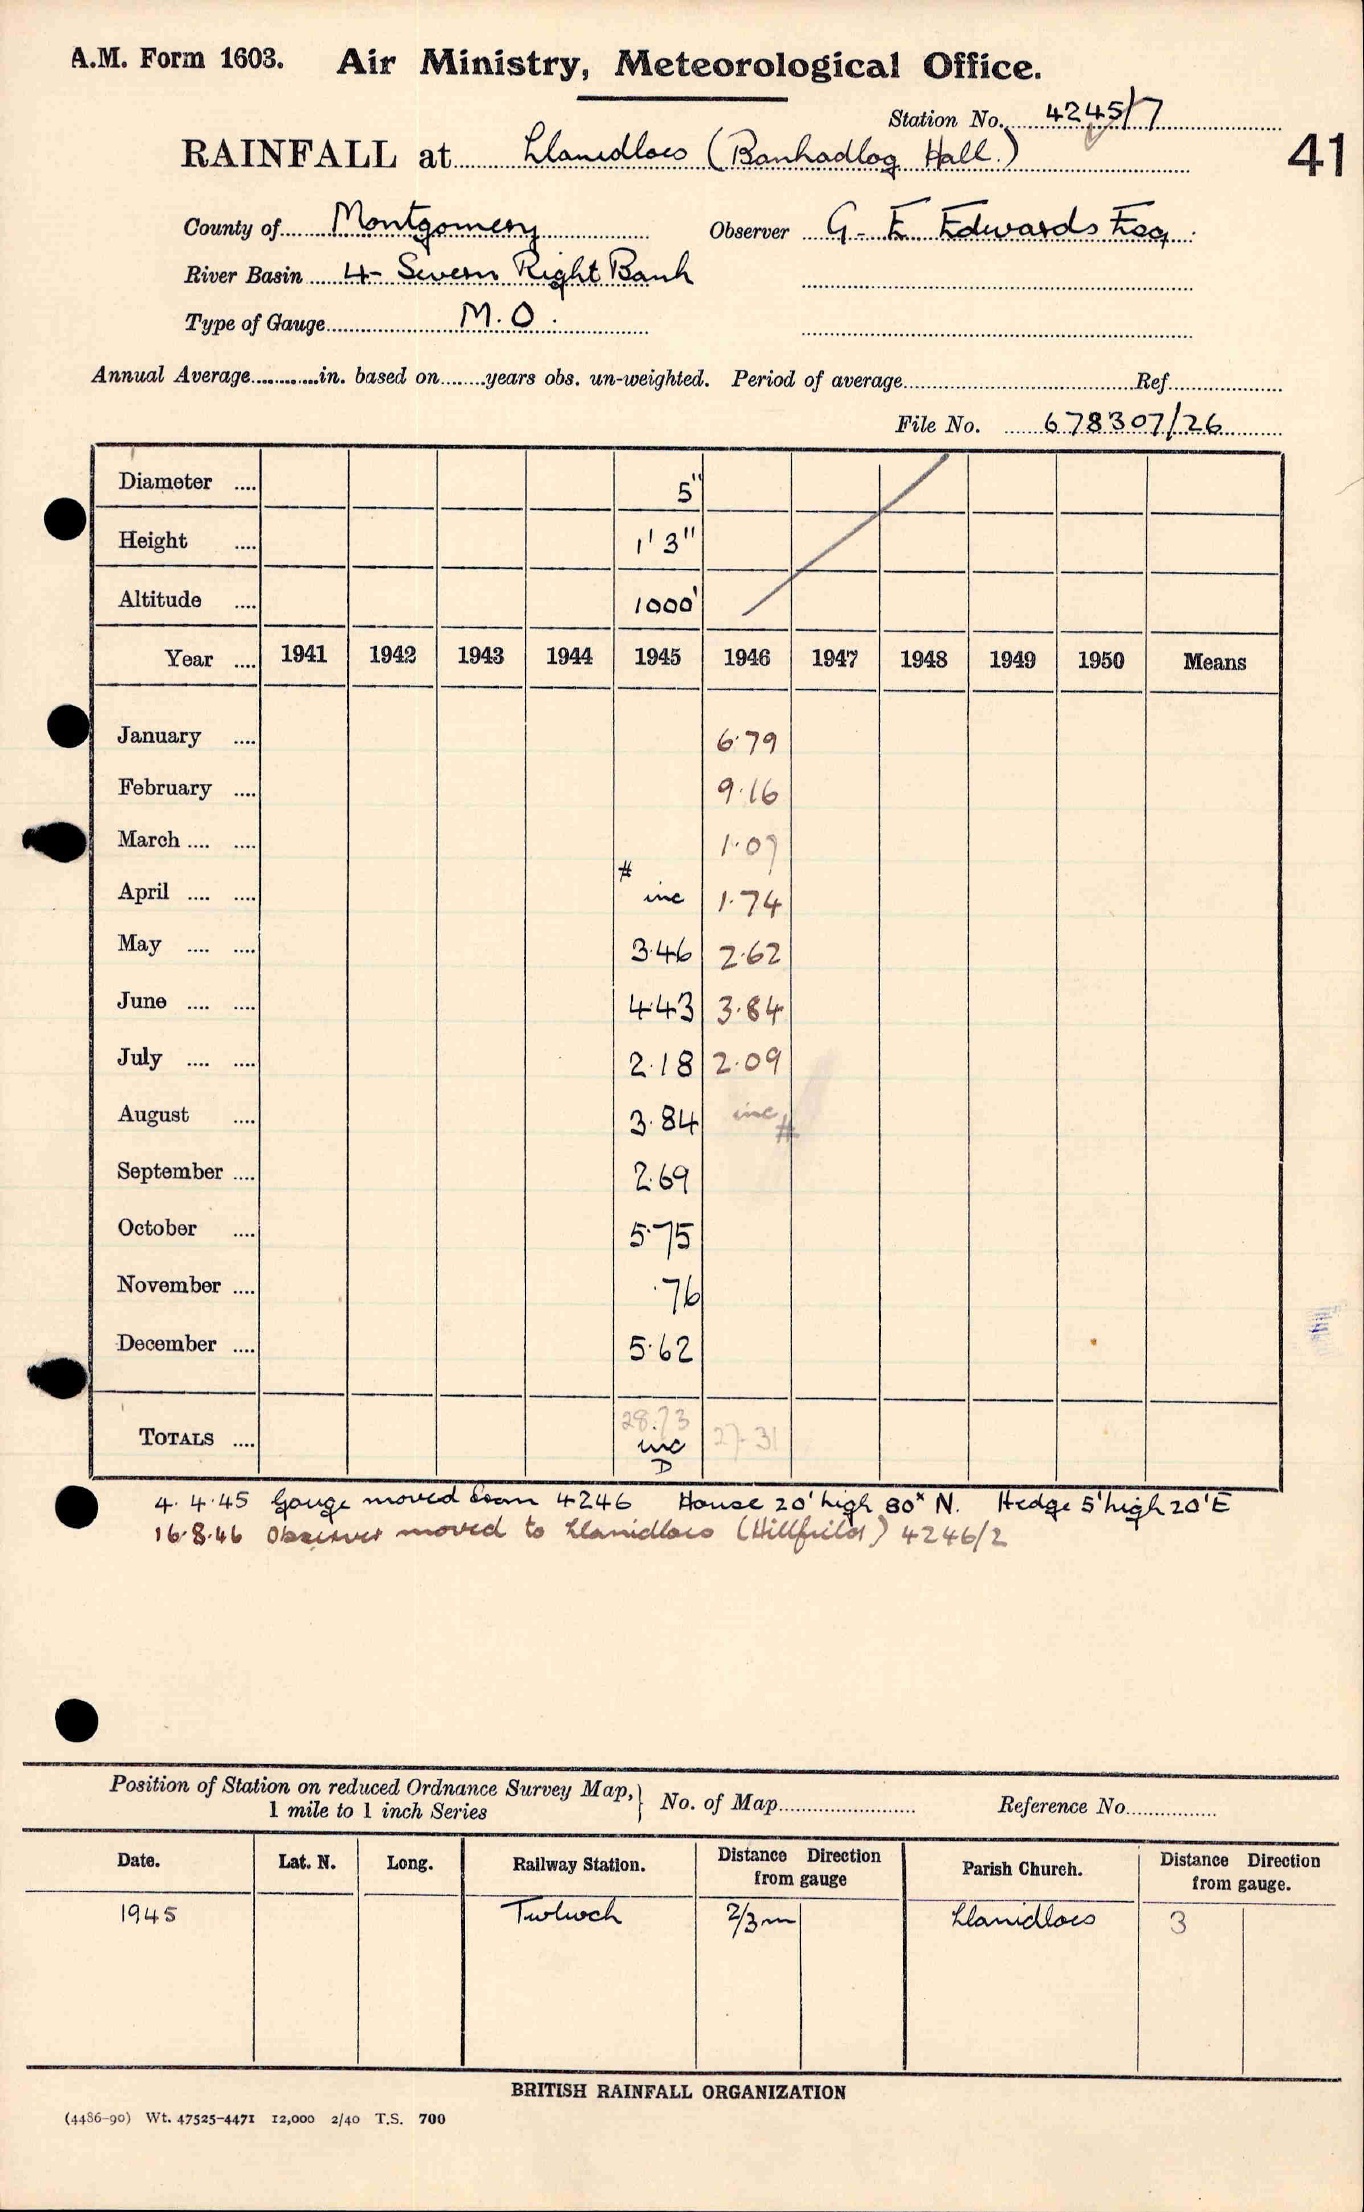 A.M. Form 1603. Air Ministry, Meteorological Office.
Station No. 4245/7
RAINFALL at Llanidloes (Banhadlog Hall.)
41
County of Montgomery Observer G. E. Edwards Esq.
River Basin 4- Severn Right Bank
Type of Gauge M.O.
Annual Average in. based on years obs. un-weighted. Period of average Ref.
File No. 678307/26
Diameter .... 5"
Height .... 1' 3"
Altitude .... 1000'
Year .... 1941 1942 1943 1944 1945 1946 1947 1948 1949 1950 Means
January .... 6.79
February .... 9.16
March .... .... 1.07
#
April .... .... inc 1.74
May .... .... 3.46 2.62
June .... .... 4.43 3.84
July .... .... 2.18 2.09
August .... 3.84 inc #
September .... 2.69
October .... 5.75
November .... .76
December .... 5.62
28.73
TOTALS .... inc 27.31
D
4.4.45 Gauge moved from 4246 House 20' high 80x N. Hedge 5' high 20' E
16.8.46 Observer moved to Llanidloes (Hillfield) 4246/2
Position of Station on reduced Ordnance Survey Map, } No. of Map Reference No.
1 mile to 1 inch Series
Date. Lat. N. Long. Railway Station. Distance Direction from gauge Parish Church. Distance Direction from gauge.
1945 Tylwch 2/3 m Llanidloes 3
BRITISH RAINFALL ORGANIZATION
(4486-90) Wt. 47525-4471 12,000 2/40 T.S. 700